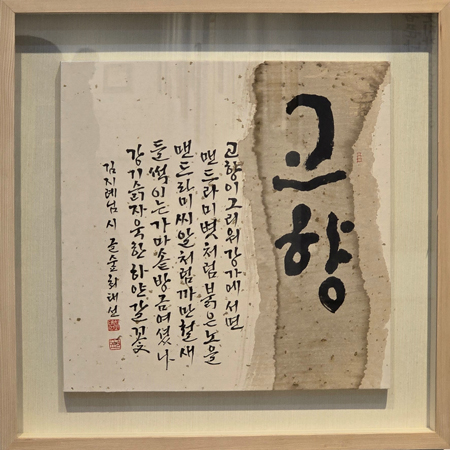 고향
고향이 그리워 강가에 서면
맨드라미 볏처럼 붉은 노을
맨드라미 씨알처럼 까만 철새
들썩이는 가마솥 방금 여셨나
강기슭 자욱한 하얀 갈꽃
김지혜님 시 글 숨 최태선